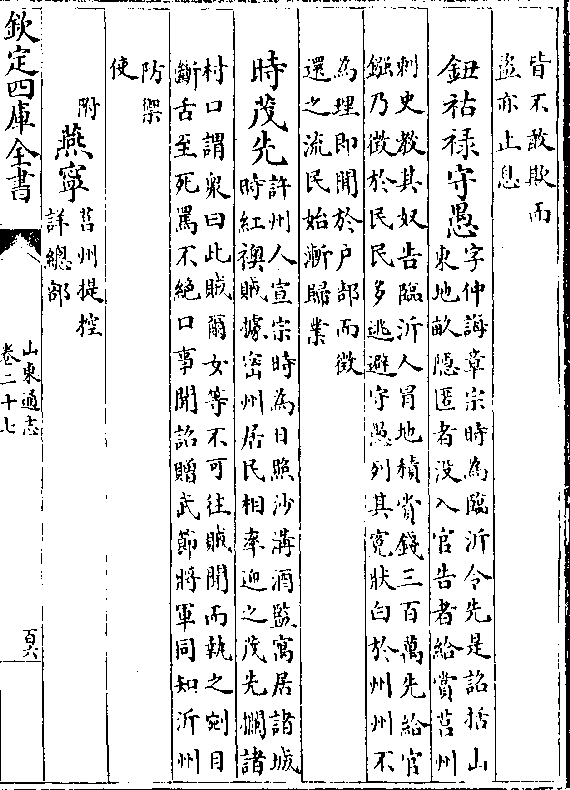 皆不敢欺而
盗亦止息
鈕祜禄守愚字仲誨章宗時為臨沂令先是詔括山
東地畝隠匿者没入官告者給賞莒州
刺史教其奴告臨沂人冒地積賞錢三百萬先給官
鏹乃徴於民民多逃避守愚列其寃狀白於州州不
為理即聞於户部而徴
還之流民始漸歸業
時茂先許州人宣宗時為日照沙溝酒監寓居諸城
時紅襖賊據密州居民相率迎之茂先攔諸
村口謂衆曰此賊爾女等不可往賊聞而執之剜目
斷舌至死罵不絶口事聞詔贈武節將軍同知沂州
防禦
使
附燕寧莒州提控
詳總部
欽定四庫全書
山東通志
卷二十七
百六